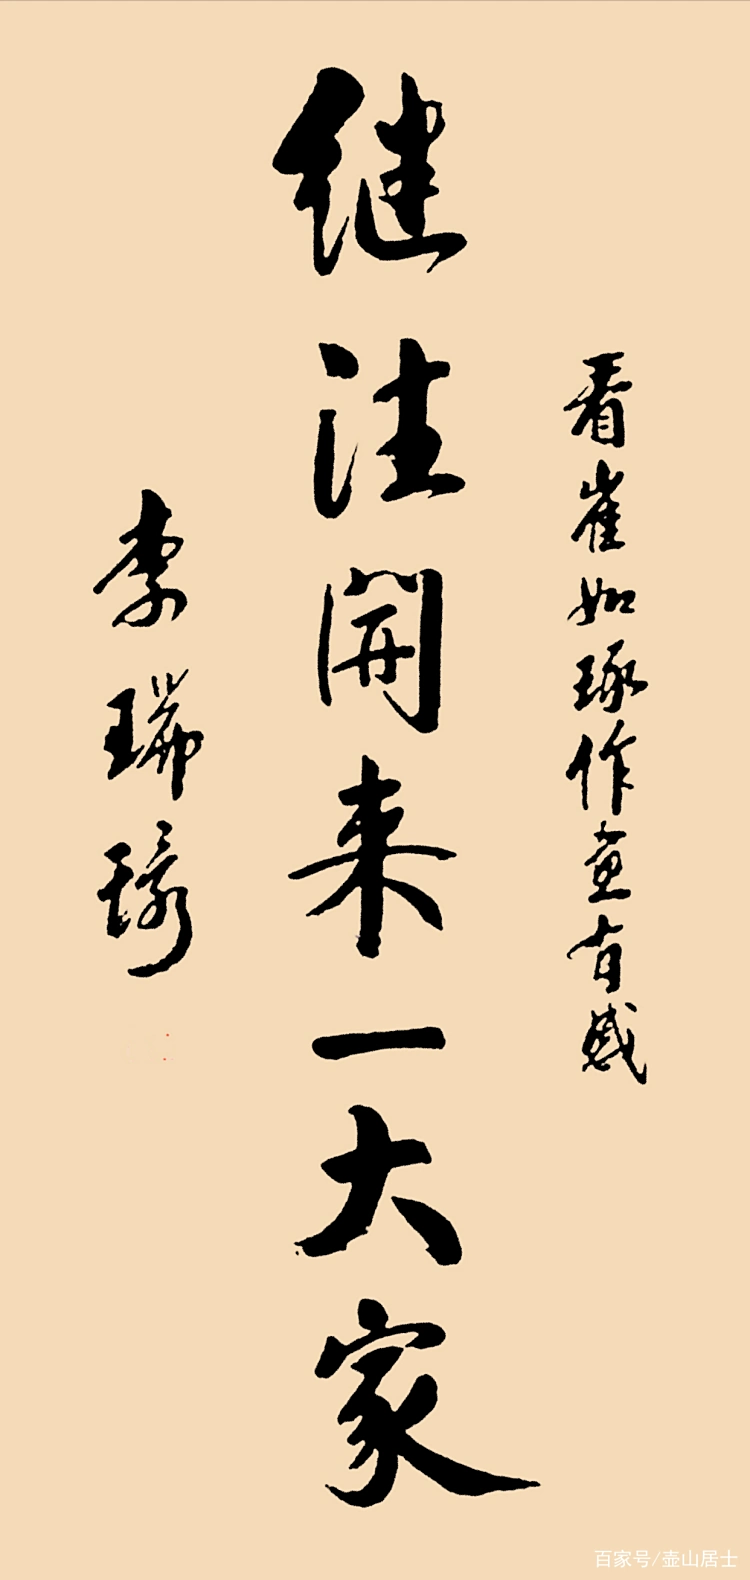 看崔如琢作画有感
继往開来一大家
李瑞环
百家号/壶山居士